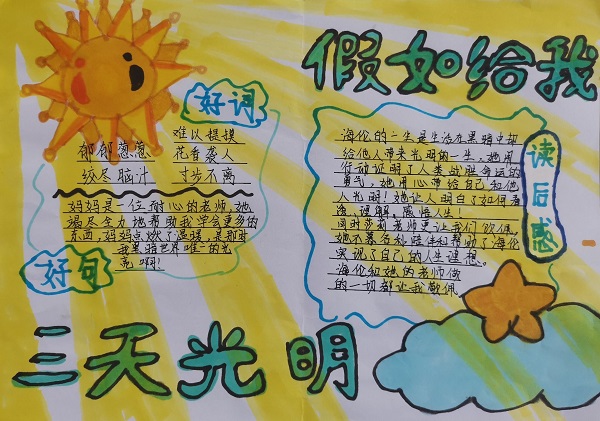 假如给我
三天光明
好词
难以捉摸
郁郁葱葱 花香袭人
绞尽脑汁 寸步不离
好句
妈妈是一位耐心的老师,她
竭尽全力地帮助我学会更多的
东西,妈妈点燃了温暖,是那时
我黑暗世界唯一的光
亮啊!
读后感
海伦的一生是生活在黑暗中却
给他人带来光明的一生,她用
行动证明了人类战胜命运的
勇气,她用心带给自己和他
人光明!她让人明白了如何看
待、理解、感悟人生!
同时莎莉老师更让我们钦佩,
她不慕名利陪伴和帮助了海伦
实现了自己的人生理想。
海伦和她的老师做
的一切都让我敬佩。